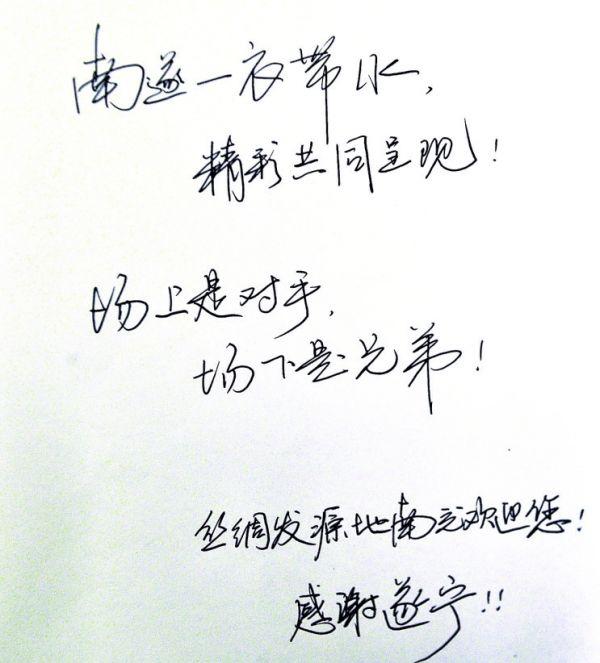 南遂一衣带水,
精彩共同呈现!
场上是对手,
场下是兄弟!
丝绸发源地南充欢迎您!
感谢遂宁!!